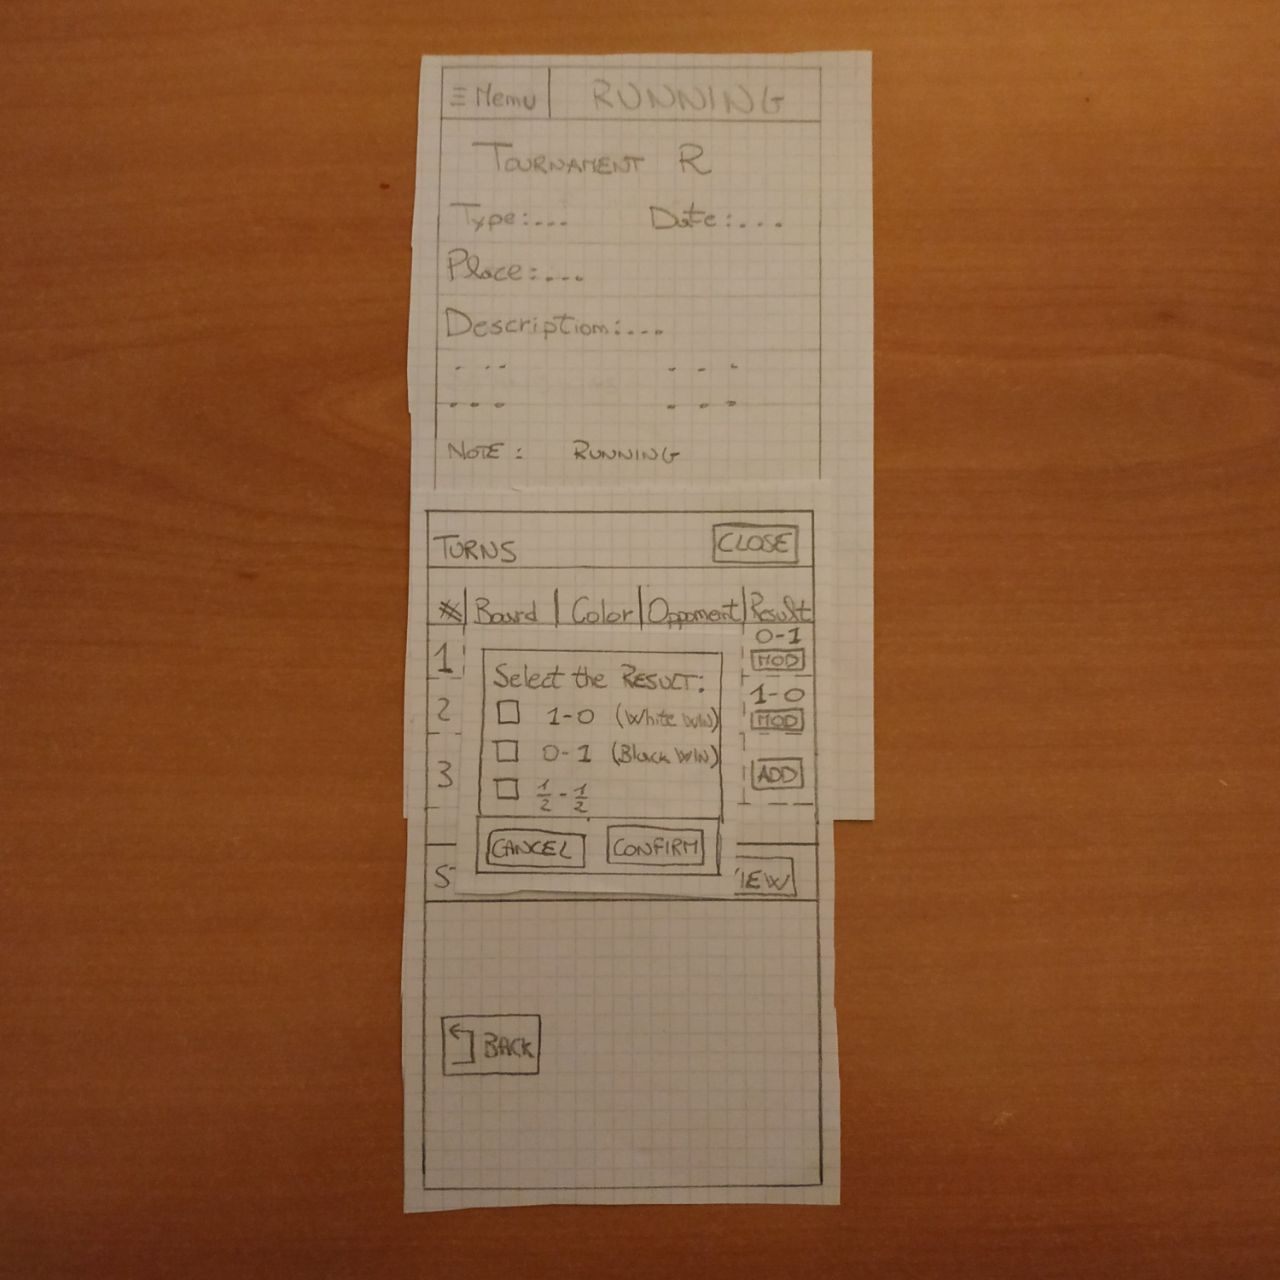 ≡ Menu RUNNING
TOURNAMENT R
Type:... Date:...
Place:...
Description:...
... ...
... ...
NOTE: RUNNING
TURNS CLOSE
# Board Color Opponent Result
1 0-1
MOD
2 1-0
MOD
3 ADD
Select the RESULT:
1-0 (White WIN)
0-1 (Black WIN)
1/2 - 1/2
CANCEL CONFIRM
BACK